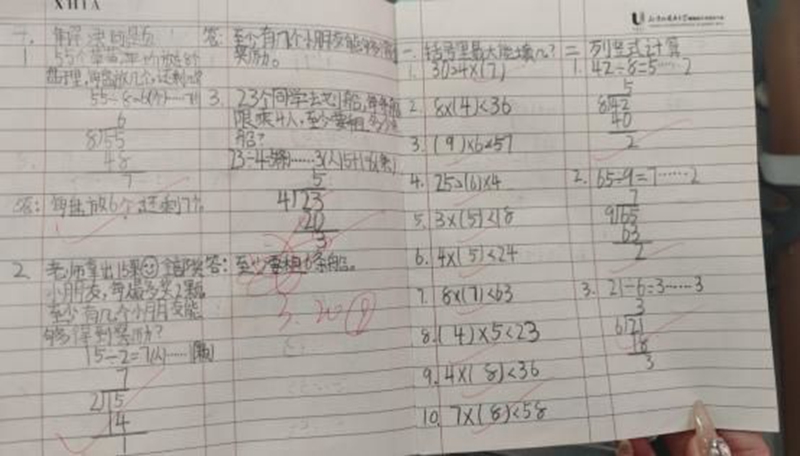 XHIA
一、解决问题
1 55个草莓,平均放在8个
盘里,每盘放几个,还剩几个
55÷8=6(个)……7(个)
6
8 55
48
7
答:每盘放6个,还剩7个。
2、老师拿出15颗
小朋友,每人最多奖2颗,
至少有几个小朋友能
够得到奖励?
15÷2=7(人)……1(颗)
7
2 15
14
1
答:至少有7个小朋友能够得到
奖励。
3、23个同学去划船,每条船
限乘4人,至少要租多少条
船?
23÷4=5(条)……3(人)5+1=6(条)
5
4 23
20
3
答:至少要租6条船。
3.20
一、括号里最大能填几?
1. 30>4×(7)
2. 8×(4)<36
3. (9)×6<57
4. 25>(6)×4
5. 3×(5)<18
6. 4×(5)<24
7. 8×(7)<63
8. (4)×5<23
9. 4×(8)<36
10. 7×(8)<58
二 列竖式计算
1. 42÷8=5……2
5
8 42
40
2
2. 65÷9=7……2
7
9 65
63
2
3. 21÷6=3……3
3
6 21
18
3